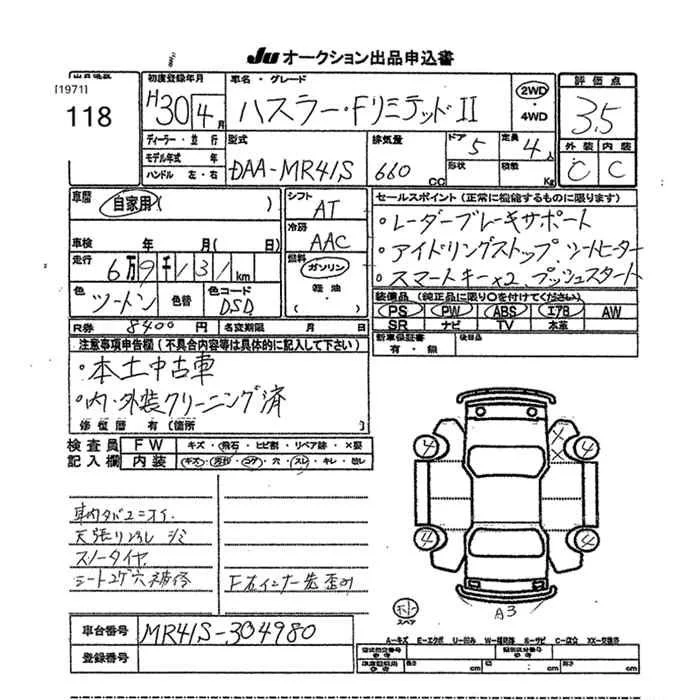 JU オークション出品申込書
[1971]
118
初度登録年月
H30 4月
車名・グレード
ハスラー・FリミテッドII
2WD
・
4WD
評価点
3.5
外装 内装
C C
ディーラー・並行
モデル年式 年
ハンドル 左・右
型式
DAA-MR41S
排気量
660 CC
ドア
5
形状
定員
4人
積載
Kg
車歴
自家用( )
車検 年 月( 日)
走行
6万9千131km
色
ツートン
色替
色コード
D5D
シフト
AT
冷房
AAC
燃料
ガソリン
軽油
セールスポイント(正常に機能するものに限ります)
・レーダーブレーキサポート
・アイドリングストップ、シートヒーター
・スマートキー×2、プッシュスタート
装備品(純正品に限り○を付けてください)
PS PW ABS エアB AW
SR ナビ TV 本革
R券 8400円 名変期限 月 日
新車保証書
有・無
後日品
注意事項申告欄(不具合内容等は具体的に記入して下さい)
・本土中古車
・内・外装クリーニング済
修復歴 有〔箇所 〕
検査員
記入欄
FW キズ・飛石・ヒビ割・リペア跡・×要
内装 キズ・汚れ・コゲ・穴・スレ・キレ・凹し
車内タバコニオイ
天張り シミ
スノータイヤ
シートコゲ穴補修
F左インナー先歪み
4 4
X
X
4 4
A3
スペア
A−キズ E−エクボ U−凹み W−補修跡 S−サビ C−腐食 XX−交換済
車台番号 MR41S-304980
登録番号
型式指定番号
類別区分番号
長さ cm 幅 cm 高さ cm